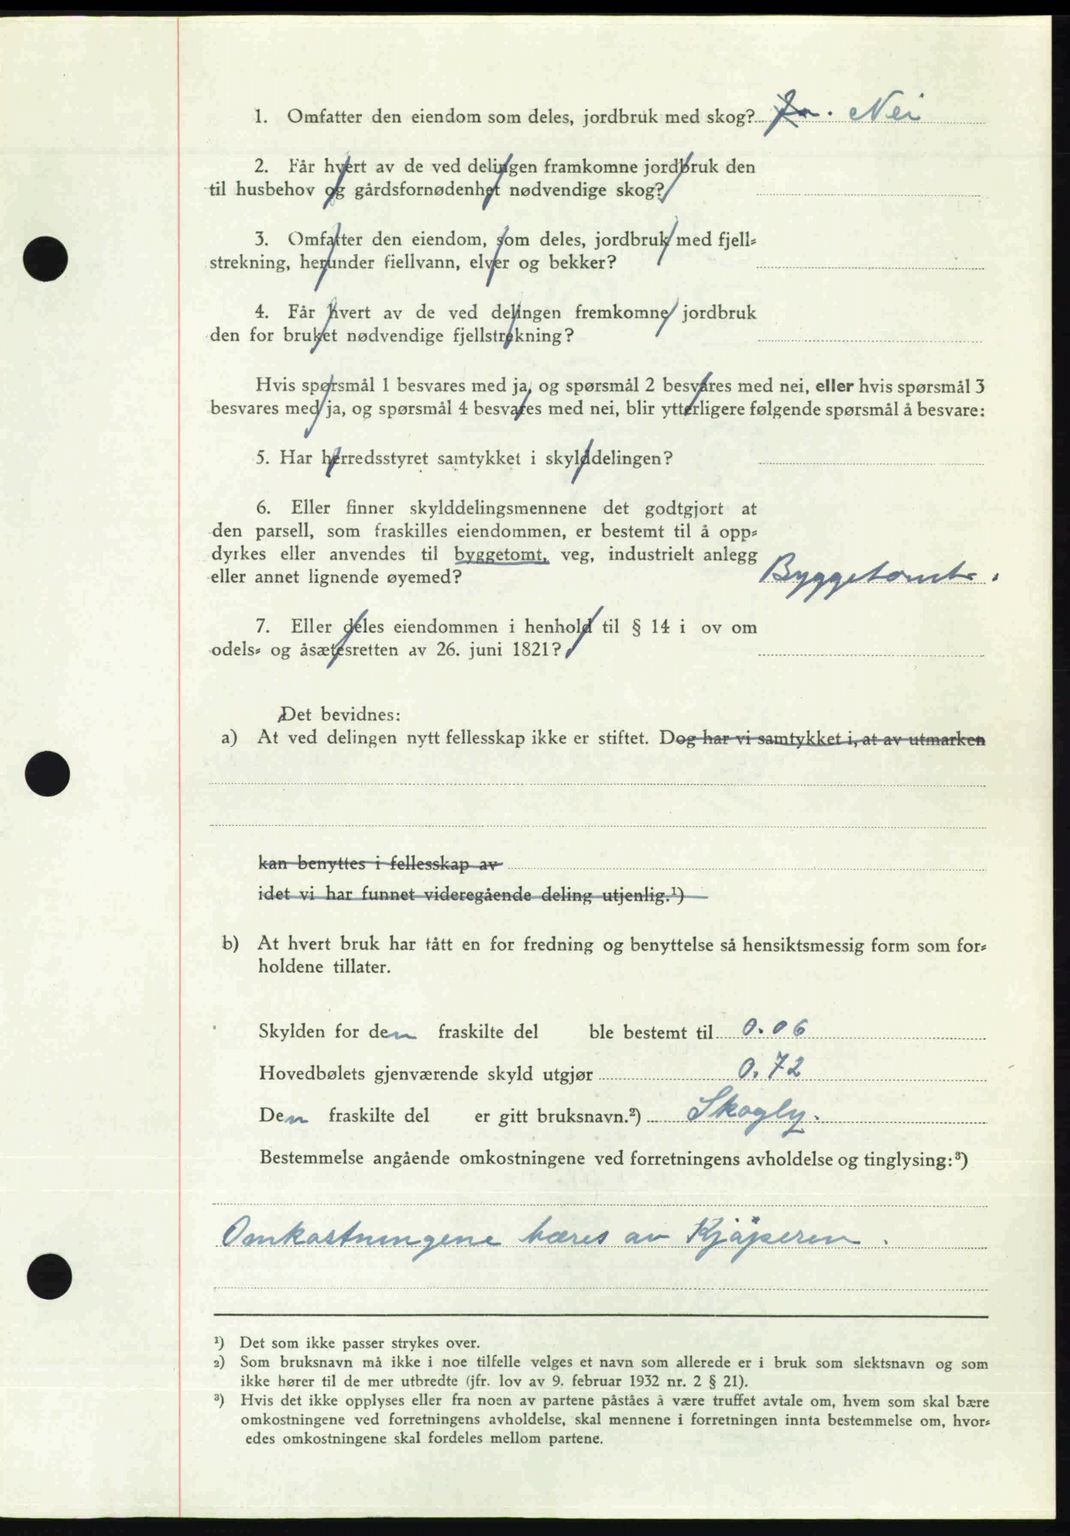 1. Omfatter den eiendom som deles, jordbruk med skog? Ja. Nei
2. Får hvert av de ved delingen framkomne jordbruk den
til husbehov og gårdsfornødenhet nødvendige skog?
3. Omfatter den eiendom, som deles, jordbruk med fjell=
strekning, herunder fiellvann, elver og bekker?
4. Får hvert av de ved delingen fremkomne jordbruk
den for bruket nødvendige fjellstrekning?
Hvis spørsmål 1 besvares med ja, og spørsmål 2 besvares med nei, eller hvis spørsmål 3
besvares med ja, og spørsmål 4 besvares med nei, blir ytterligere følgende spørsmål å besvare:
5. Har herredsstyret samtykket i skylddelingen?
6. Eller finner skylddelingsmennene det godtgjort at
den parsell, som fraskilles eiendommen, er bestemt til å opp=
dyrkes eller anvendes til byggetomt, veg, industrielt anlegg
eller annet lignende øyemed? Byggetomt.
7. Eller deles eiendommen i henhold til § 14 i ov om
odels= og åsætesretten av 26. juni 1821?
Det bevidnes:
a) At ved delingen nytt fellesskap ikke er stiftet. Dog har vi samtykket i, at av utmarken
kan benyttes i fellesskap av
idet vi har funnet videregående deling utjenlig.¹)
b) At hvert bruk har fått en for fredning og benyttelse så hensiktsmessig form som for=
holdene tillater.
Skylden for den fraskilte del ble bestemt til 0.06
Hovedbølets gjenværende skyld utgjør 0.72
Den fraskilte del er gitt bruksnavn.²) Skogly.
Bestemmelse angående omkostningene ved forretningens avholdelse og tinglysing:³)
Omkostningene bæres av Kjøperen.
¹) Det som ikke passer strykes over.
²) Som bruksnavn må ikke i noe tilfelle velges et navn som allerede er i bruk som slektsnavn og som
ikke hører til de mer utbredte (jfr. lov av 9. februar 1932 nr. 2 § 21).
³) Hvis det ikke opplyses eller fra noen av partene påståes å være truffet avtale om, hvem som skal bære
omkostningene ved forretningens avholdelse, skal mennene i forretningen innta bestemmelse om, hvor=
edes omkostningene skal fordeles mellom partene.